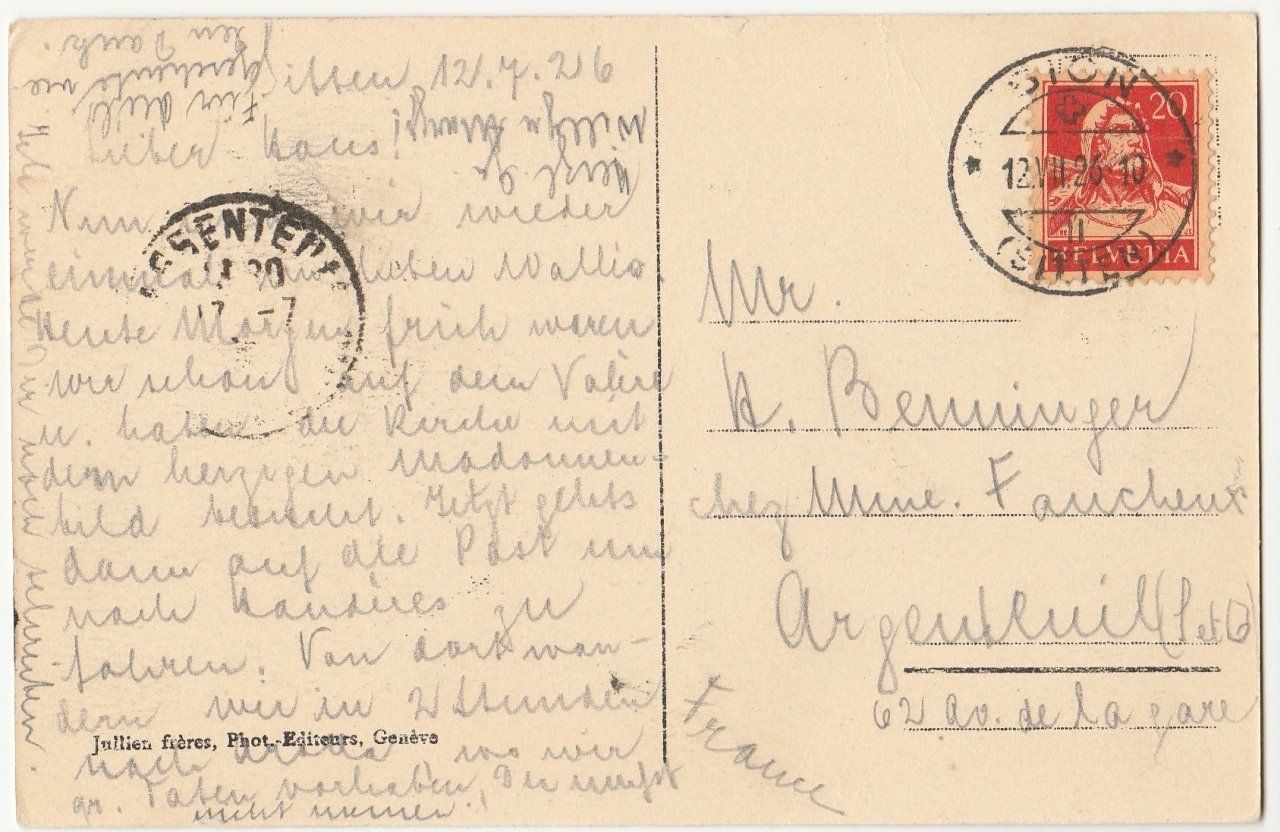 Sitten, 12.7.26
Lieber Hans!
Nun wir wieder
einmal im lieben Wallis.
Heute Morgen früh waren
wir schon auf dem Valère
u. haben die Kirche mit
dem herzigen Madonnen-
bild besucht. Jetzt gehts
dann auf die Post um
nach Haudères zu
fahren. Von dort wan-
dern wir in 2 Stunden
nach Arolla wo wir
gr. Taten vorhaben. Du
nicht
Ich werde Dir noch schreiben.
Für die
Karte
den Dank.
Herzl. Gr.
Jullien frères, Phot.-Editeurs, Genève
SION
12.VII.26-10
II
(SITTEN)
20
HELVETIA
ARGENTEUIL
17 -7
Mr.
H. Benninger
chez Mme. Faucheux
Argenteuil (S et O)
62 Av. de la gare
France